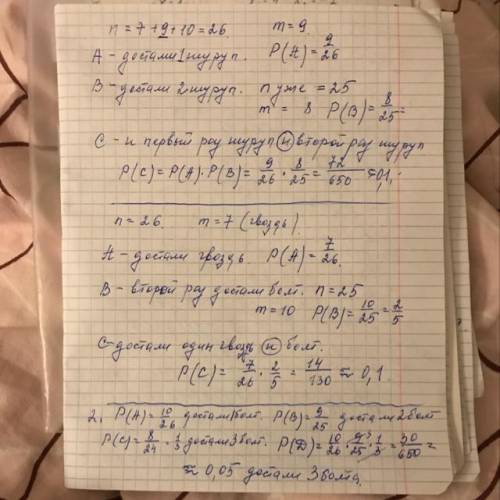 n = 7 + 9 + 10 = 26     m = 9
A - достали 1 шуруп.   P(A) = 9/26
B - достали 2 шуруп.   n уже = 25
m = 8   P(B) = 8/25 =
C - и первый раз шуруп и второй раз шуруп
P(C) = P(A) · P(B) = 9/26 · 8/25 = 72/650 ≈ 0,1.
n = 26.   m = 7 (гвоздь).
A - достали гвоздь   P(A) = 7/26.
B - второй раз достали болт. n = 25
m = 10   P(B) = 10/25 = 2/5
C - достали один гвоздь и болт.
P(C) = 7/26 · 2/5 = 14/130 ≈ 0,1
2. P(A) = 10/26 достали 1 болт. P(B) = 9/25 достали 2 болт
P(C) = 8/24 = 1/3 достали 3 болт. P(D) = 10/26 · 9³/25 · 1/3 = 30/650 =
≈ 0,05 достали 3 болта.